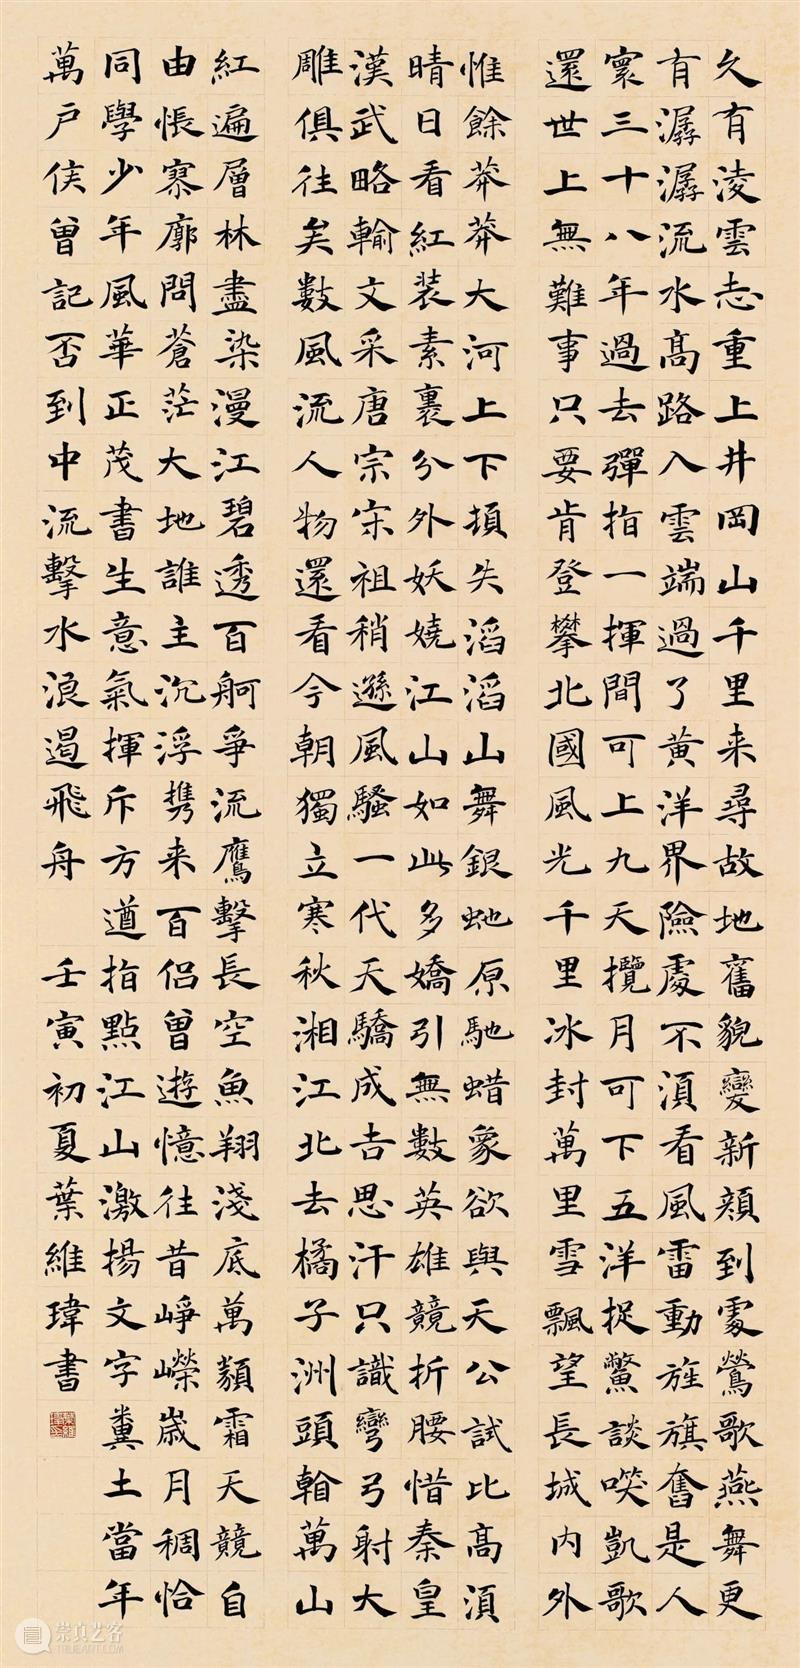 久有淩雲志重上井岡山千里来尋故地舊貌變新顔到處鶯歌燕舞更
有潺潺流水高路入雲端過了黄洋界險處不須看風雷動旌旗奮是人
寰三十八年過去彈指一揮間可上九天攬月可下五洋捉鱉談笑凱歌
還世上無難事只要肯登攀北國風光千里冰封萬里雪飄望長城内外
惟餘莽莽大河上下頓失滔滔山舞銀虵原馳蜡象欲與天公試比高須
晴日看紅装素裹分外妖嬈江山如此多嬌引無數英雄競折腰惜秦皇
漢武略輸文采唐宗宋祖稍遜風騷一代天驕成吉思汗只識彎弓射大
雕俱往矣數風流人物還看今朝獨立寒秋湘江北去橘子洲頭看萬山
紅遍層林盡染漫江碧透百舸爭流鷹擊長空魚翔淺底萬類霜天競自
由悵寥廓問蒼茫大地誰主沉浮携来百侣曾遊憶往昔崢嶸歳月稠恰
同學少年風華正茂書生意氣揮斥方遒指點江山激揚文字糞土當年
萬户侯曾記否到中流擊水浪遏飛舟 壬寅初夏葉維瑋書
崇真艺客
TRUEART.COM